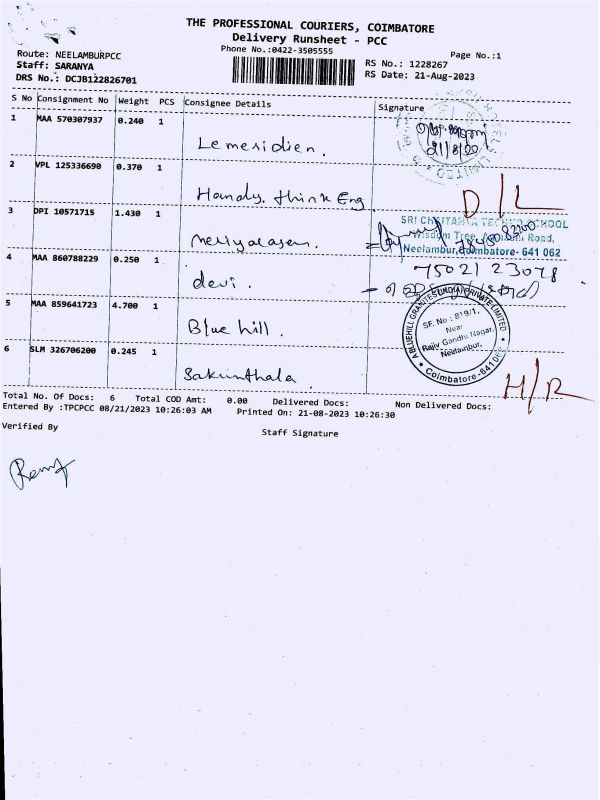 THE PROFESSIONAL COURIERS, COIMBATORE
Delivery Runsheet - PCC
Phone No.:0422-3505555
Page No.:1
Route: NEELAMBURPCC
Staff: SARANYA
DRS No.: DCJB122826701
RS No.: 1228267
RS Date: 21-Aug-2023
S No Consignment No Weight PCS Consignee Details Signature
1 MAA 570307937 0.240 1
Lemeridien.
21/8/20
2 VPL 125336690 0.370 1
Handy think Eng
D/L
3 DPI 10571715 1.430 1
SRI CHAITANYA TECHNO SCHOOL
Wisdom Tree, Road,
Neelambur, Coimbatore- 641 062
4 MAA 860788229 0.250 1
devi.
75021 23078
5 MAA 859641723 4.700 1
Blue hill.
A BLUEHILL GRANITES (INDIA) PRIVATE LIMITED
SF. No : 819/1,
Near
Rajiv Gandhi Nagar,
Neelambur,
* Coimbatore-641062 *
6 SLM 326706200 0.245 1
Sakunthala.
H/R
Total No. Of Docs: 6 Total COD Amt: 0.00 Delivered Docs: Non Delivered Docs:
Entered By :TPCPCC 08/21/2023 10:26:03 AM Printed On: 21-08-2023 10:26:30
Verified By Staff Signature